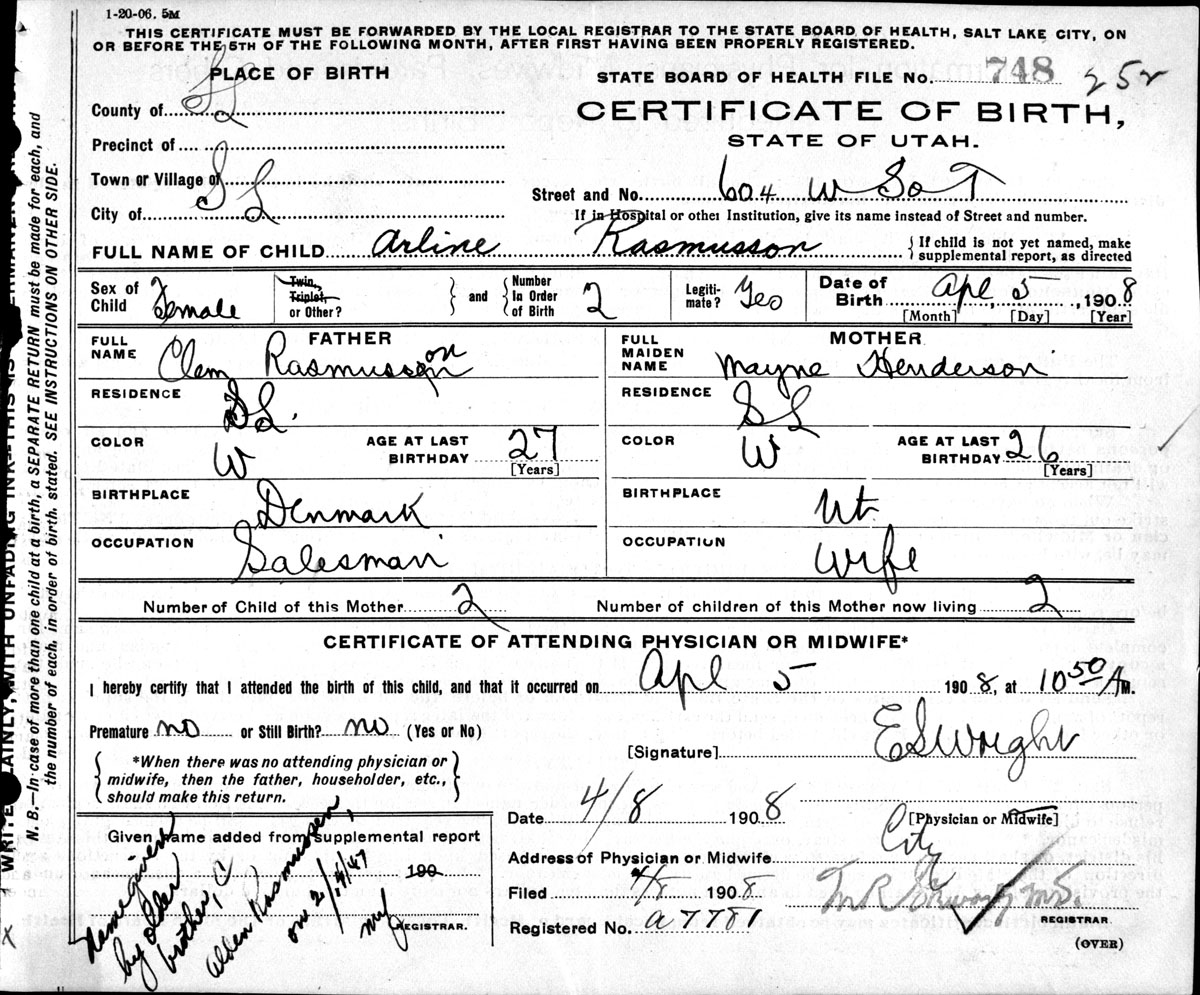 1-20-06. 5M
THIS CERTIFICATE MUST BE FORWARDED BY THE LOCAL REGISTRAR TO THE STATE BOARD OF HEALTH, SALT LAKE CITY, ON
OR BEFORE THE 5TH OF THE FOLLOWING MONTH, AFTER FIRST HAVING BEEN PROPERLY REGISTERED.
PLACE OF BIRTH
STATE BOARD OF HEALTH FILE NO. 748 252
County of S L
CERTIFICATE OF BIRTH,
Precinct of
STATE OF UTAH.
Town or Village of
City of S L
Street and No. 604 W So T
If in Hospital or other Institution, give its name instead of Street and number.
FULL NAME OF CHILD Arline Rasmusson { If child is not yet named, make
supplemental report, as directed
Sex of Child Female
Twin, Triplet, or Other?
and
Number In Order of Birth 2
Legitimate? Yes
Date of Birth Apl 5, 1908
[Month] [Day] [Year]
FATHER
FULL NAME Clem Rasmusson
RESIDENCE SL.
COLOR W
AGE AT LAST BIRTHDAY 27
[Years]
BIRTHPLACE Denmark
OCCUPATION Salesman
MOTHER
FULL MAIDEN NAME Mayne Henderson
RESIDENCE S L
COLOR W
AGE AT LAST BIRTHDAY 26
[Years]
BIRTHPLACE Ut.
OCCUPATION Wife
Number of Child of this Mother 2 Number of children of this Mother now living 2
CERTIFICATE OF ATTENDING PHYSICIAN OR MIDWIFE*
I hereby certify that I attended the birth of this child, and that it occurred on Apl 5 1908, at 10 50 A M.
Premature no or Still Birth? no (Yes or No)
[Signature] E S Wright
*When there was no attending physician or
midwife, then the father, householder, etc.,
should make this return.
Date 4/8 1908
[Physician or Midwife]
Given name added from supplemental report
190
REGISTRAR.
Name given
by older
brother, C
Alden Rasmussen,
on 2/14/47
Address of Physician or Midwife City
Filed 4/8 1908
REGISTRAR
Registered No. a7781
(OVER)
WRITE PLAINLY, WITH UNFADING INK—THIS IS
N. B.—In case of more than one child at a birth, a SEPARATE RETURN must be made for each, and
the number of each, in order of birth, stated. SEE INSTRUCTIONS ON OTHER SIDE.